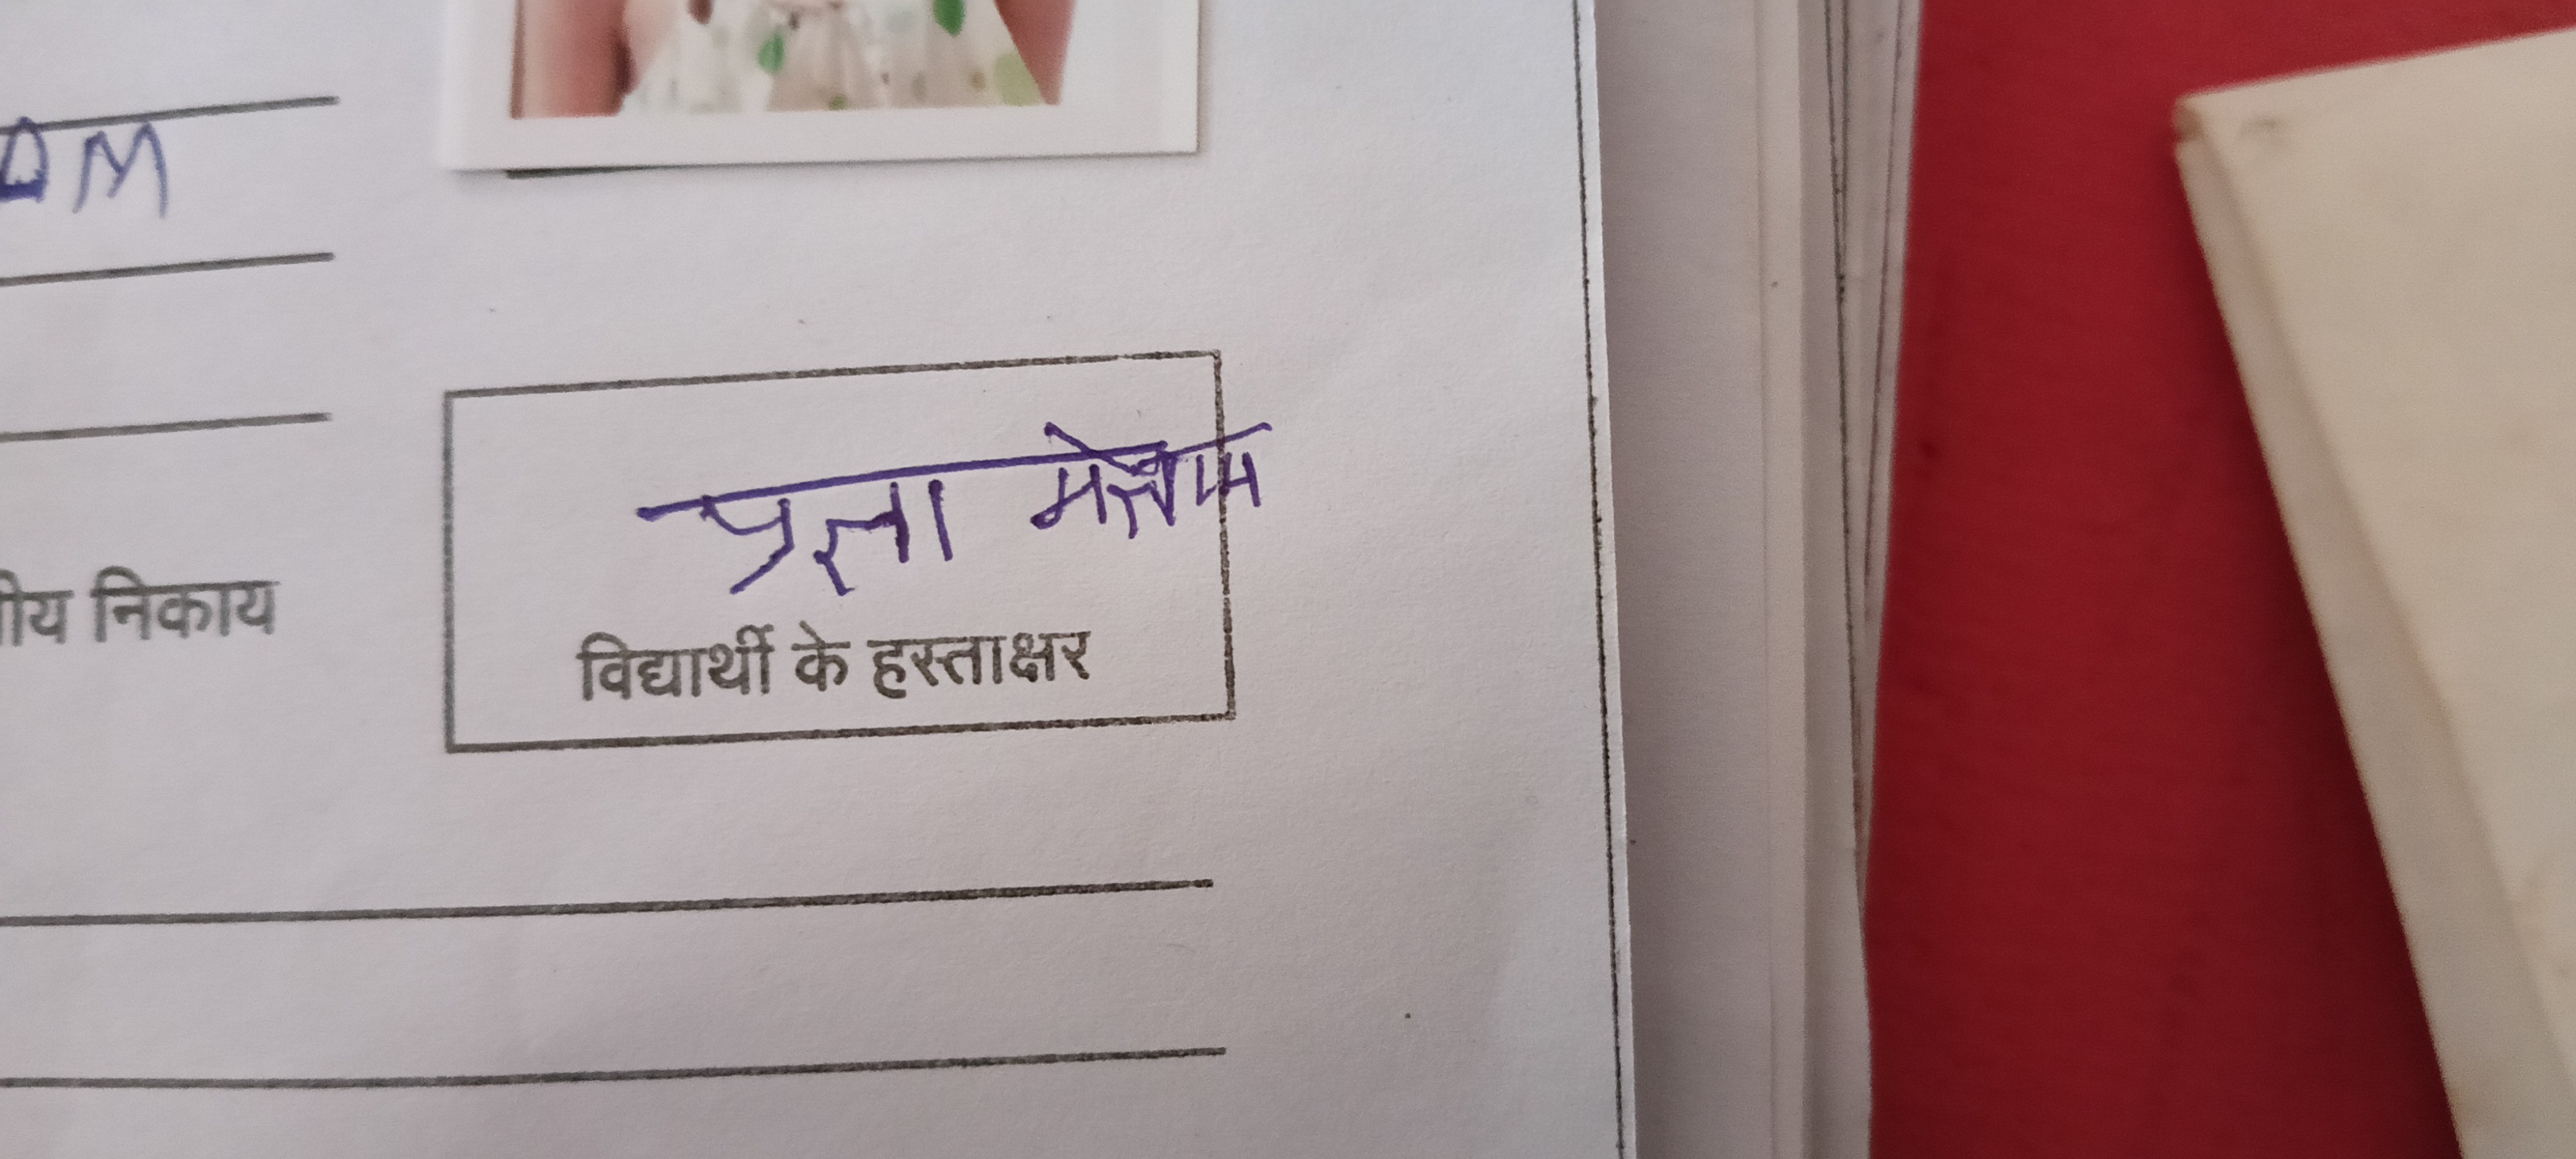 DM
ीय निकाय
प्रज्ञा मेश्राम
विद्यार्थी के हस्ताक्षर